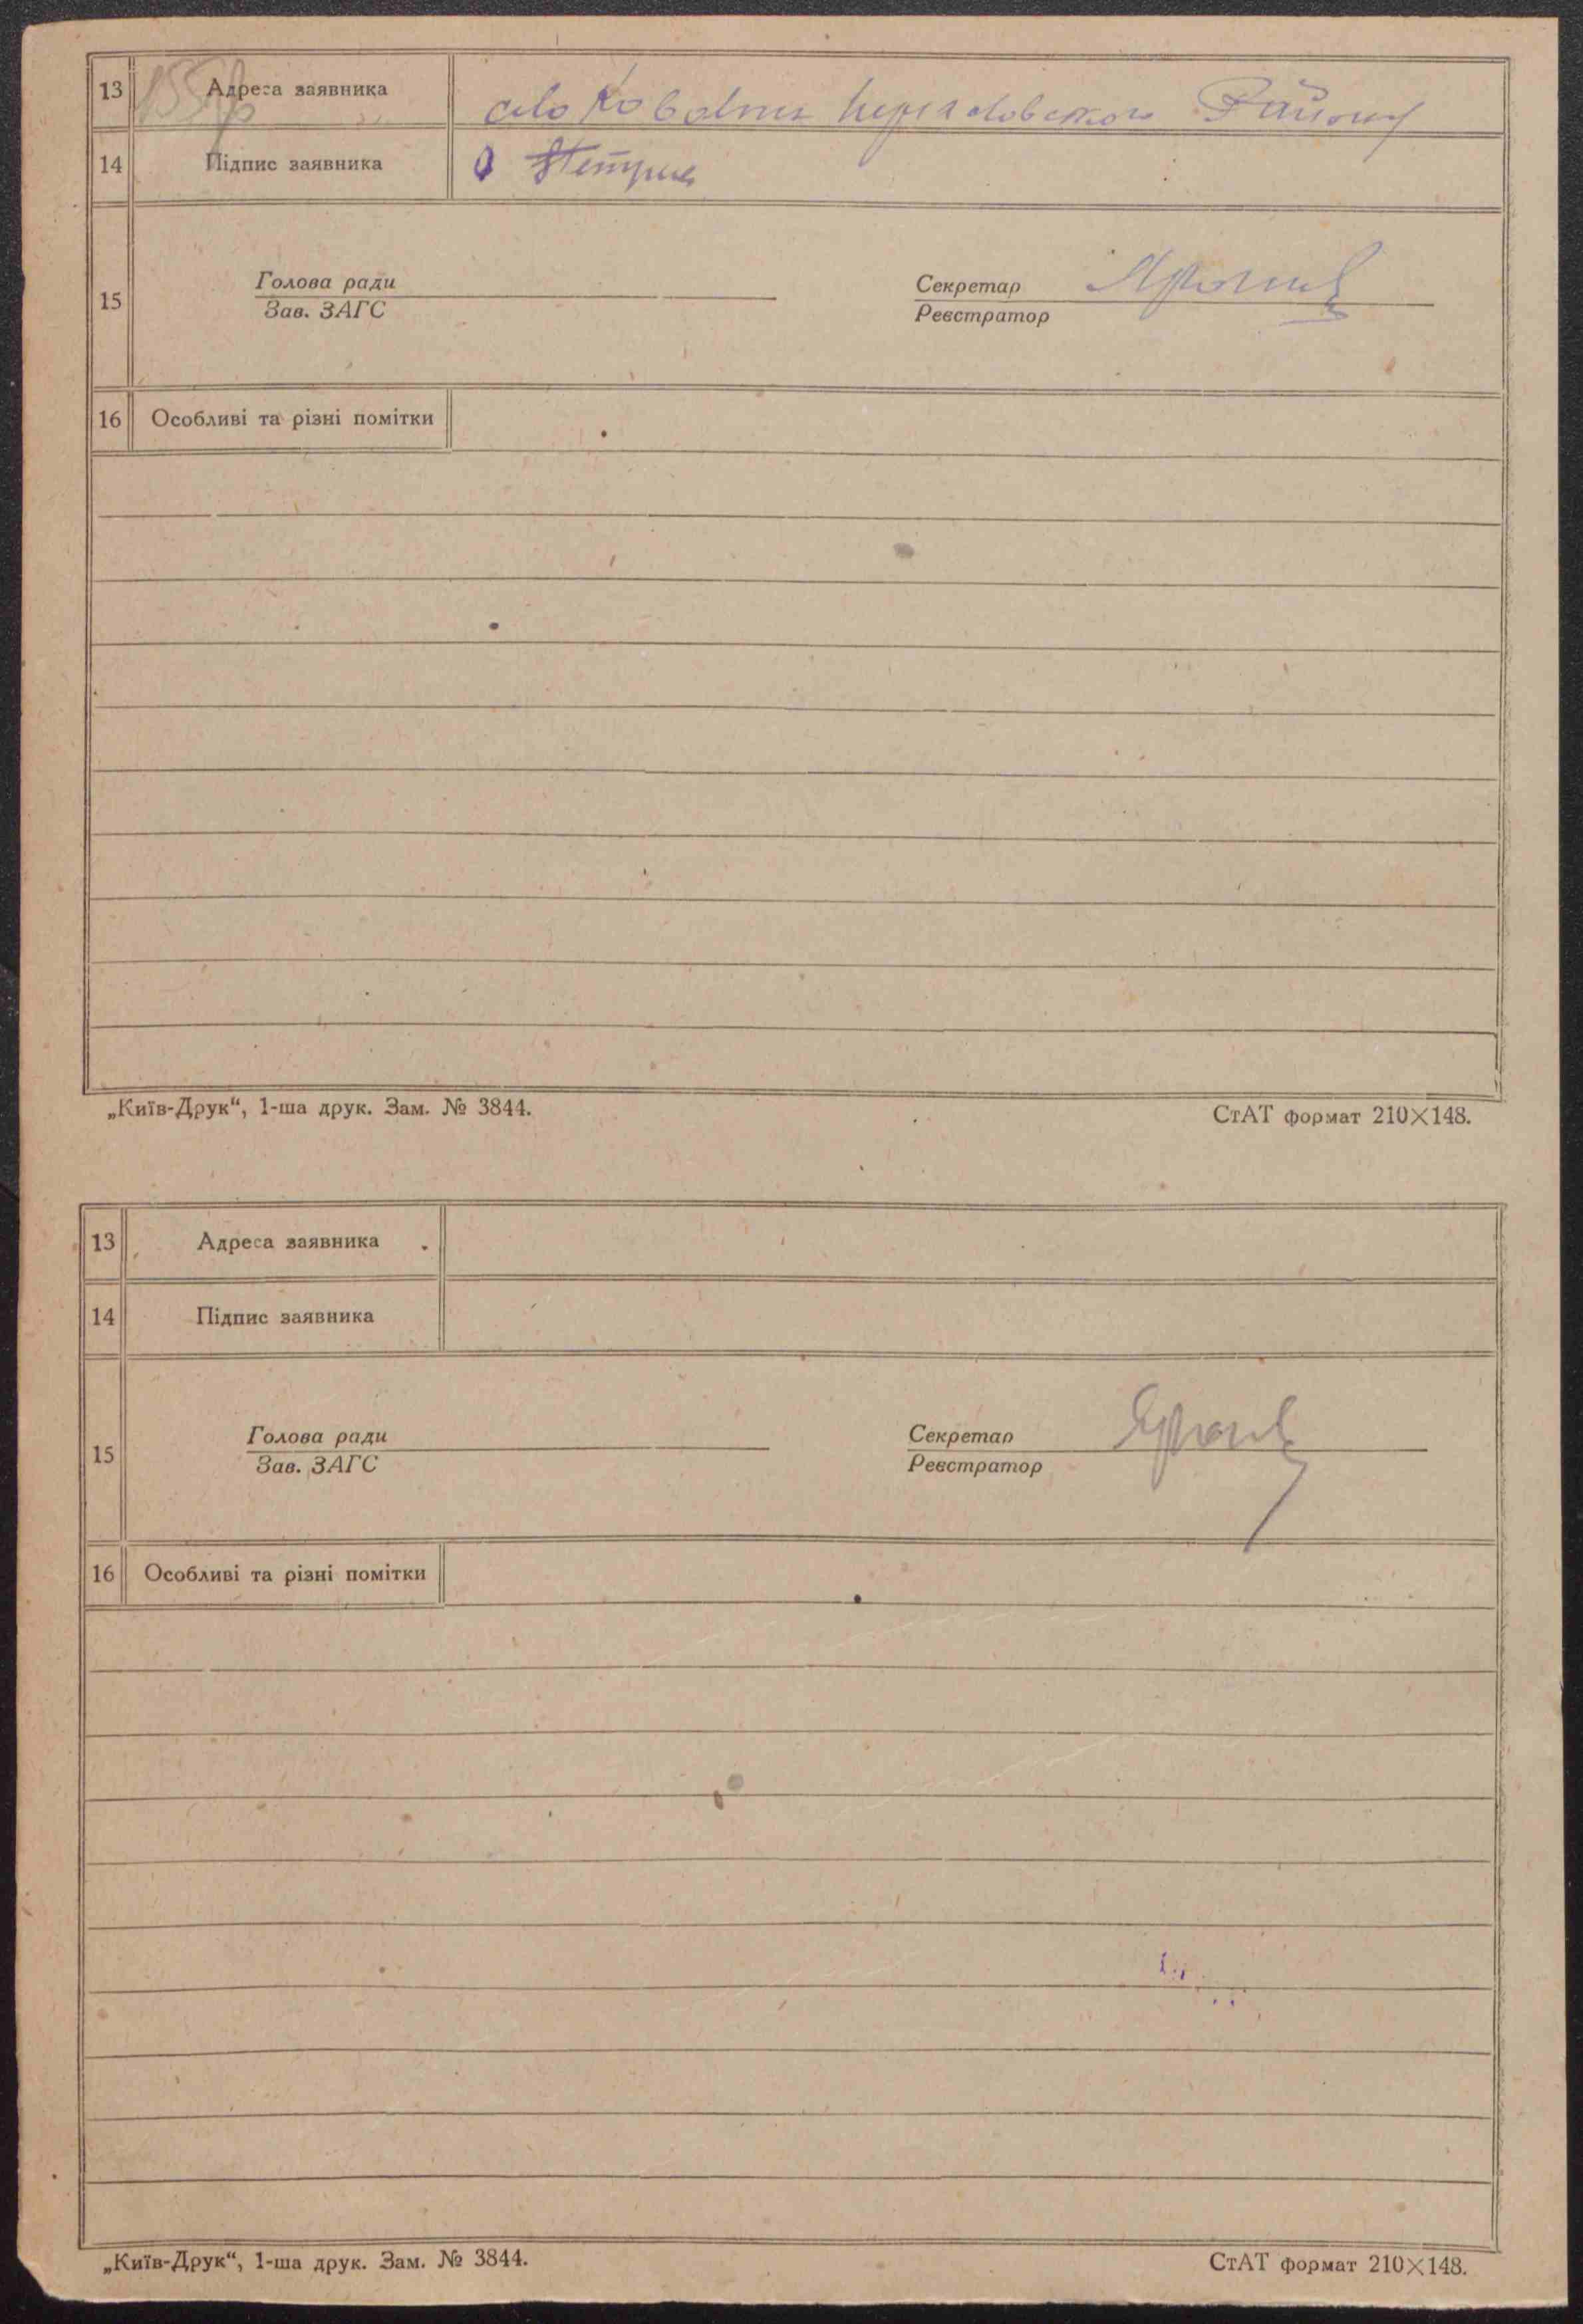 13 Адреса заявника село Ковалин Переясловского Району
14 Підпис заявника
15 Голова ради Секретар
Зав. ЗАГС Реєстратор
16 Особливі та різні помітки
„Київ-Друк“, 1-ша друк. Зам. № 3844. СтАТ формат 210×148.
13 Адреса заявника
14 Підпис заявника
15 Голова ради Секретар
Зав. ЗАГС Реєстратор
16 Особливі та різні помітки
„Київ-Друк“, 1-ша друк. Зам. № 3844. СтАТ формат 210×148.